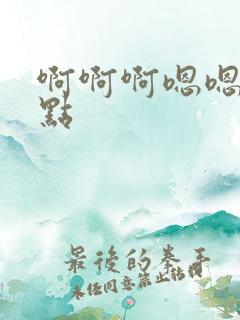 啊啊啊嗯嗯
點
最後的拳手
未任同意禁止转载